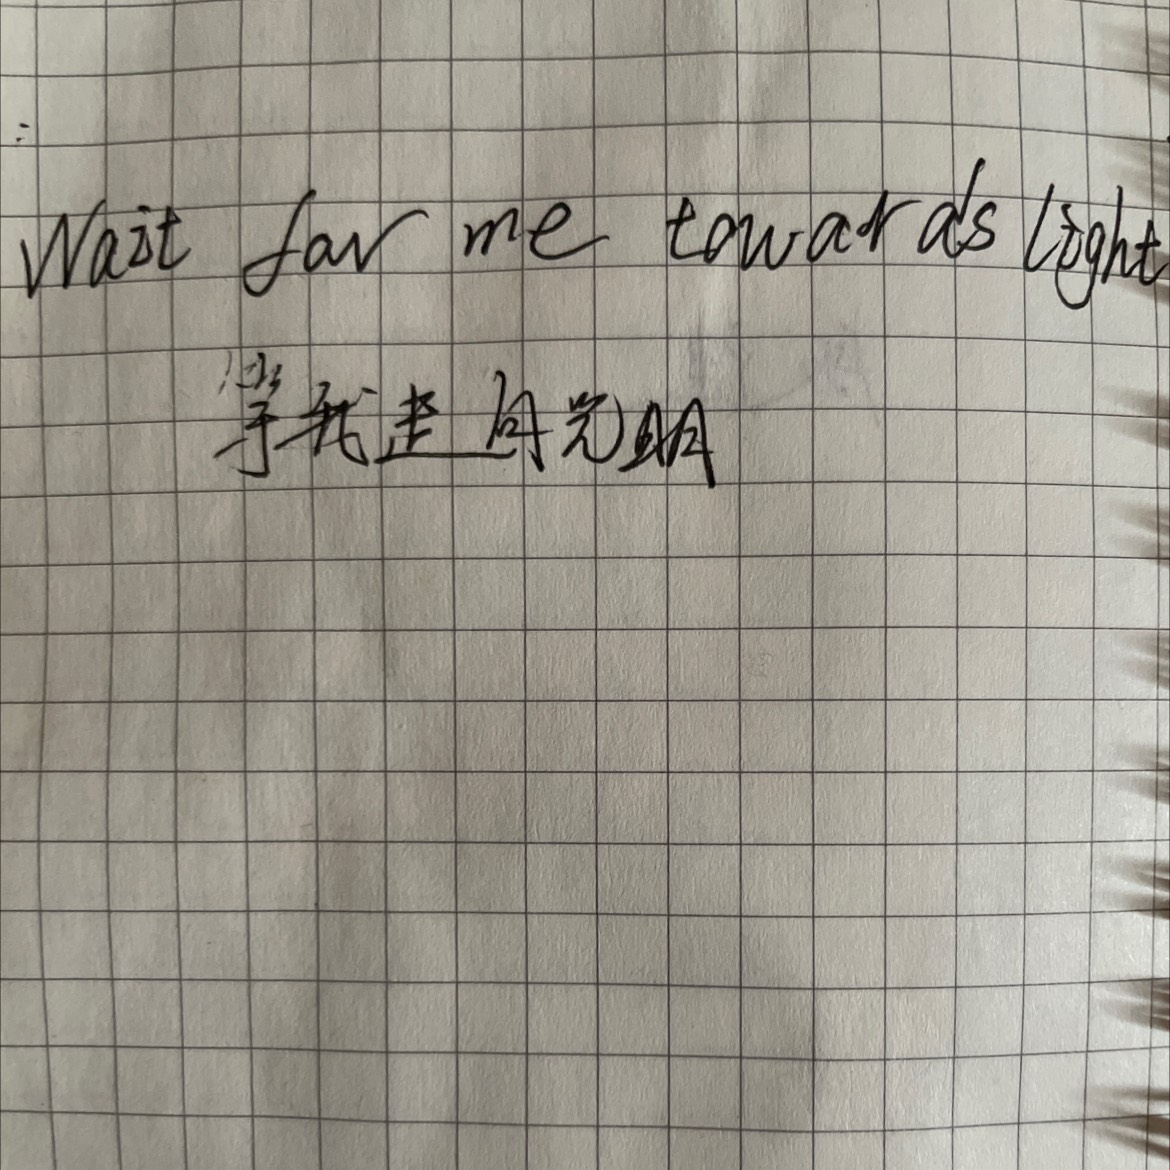 Wait for me towards light
等我走向光明